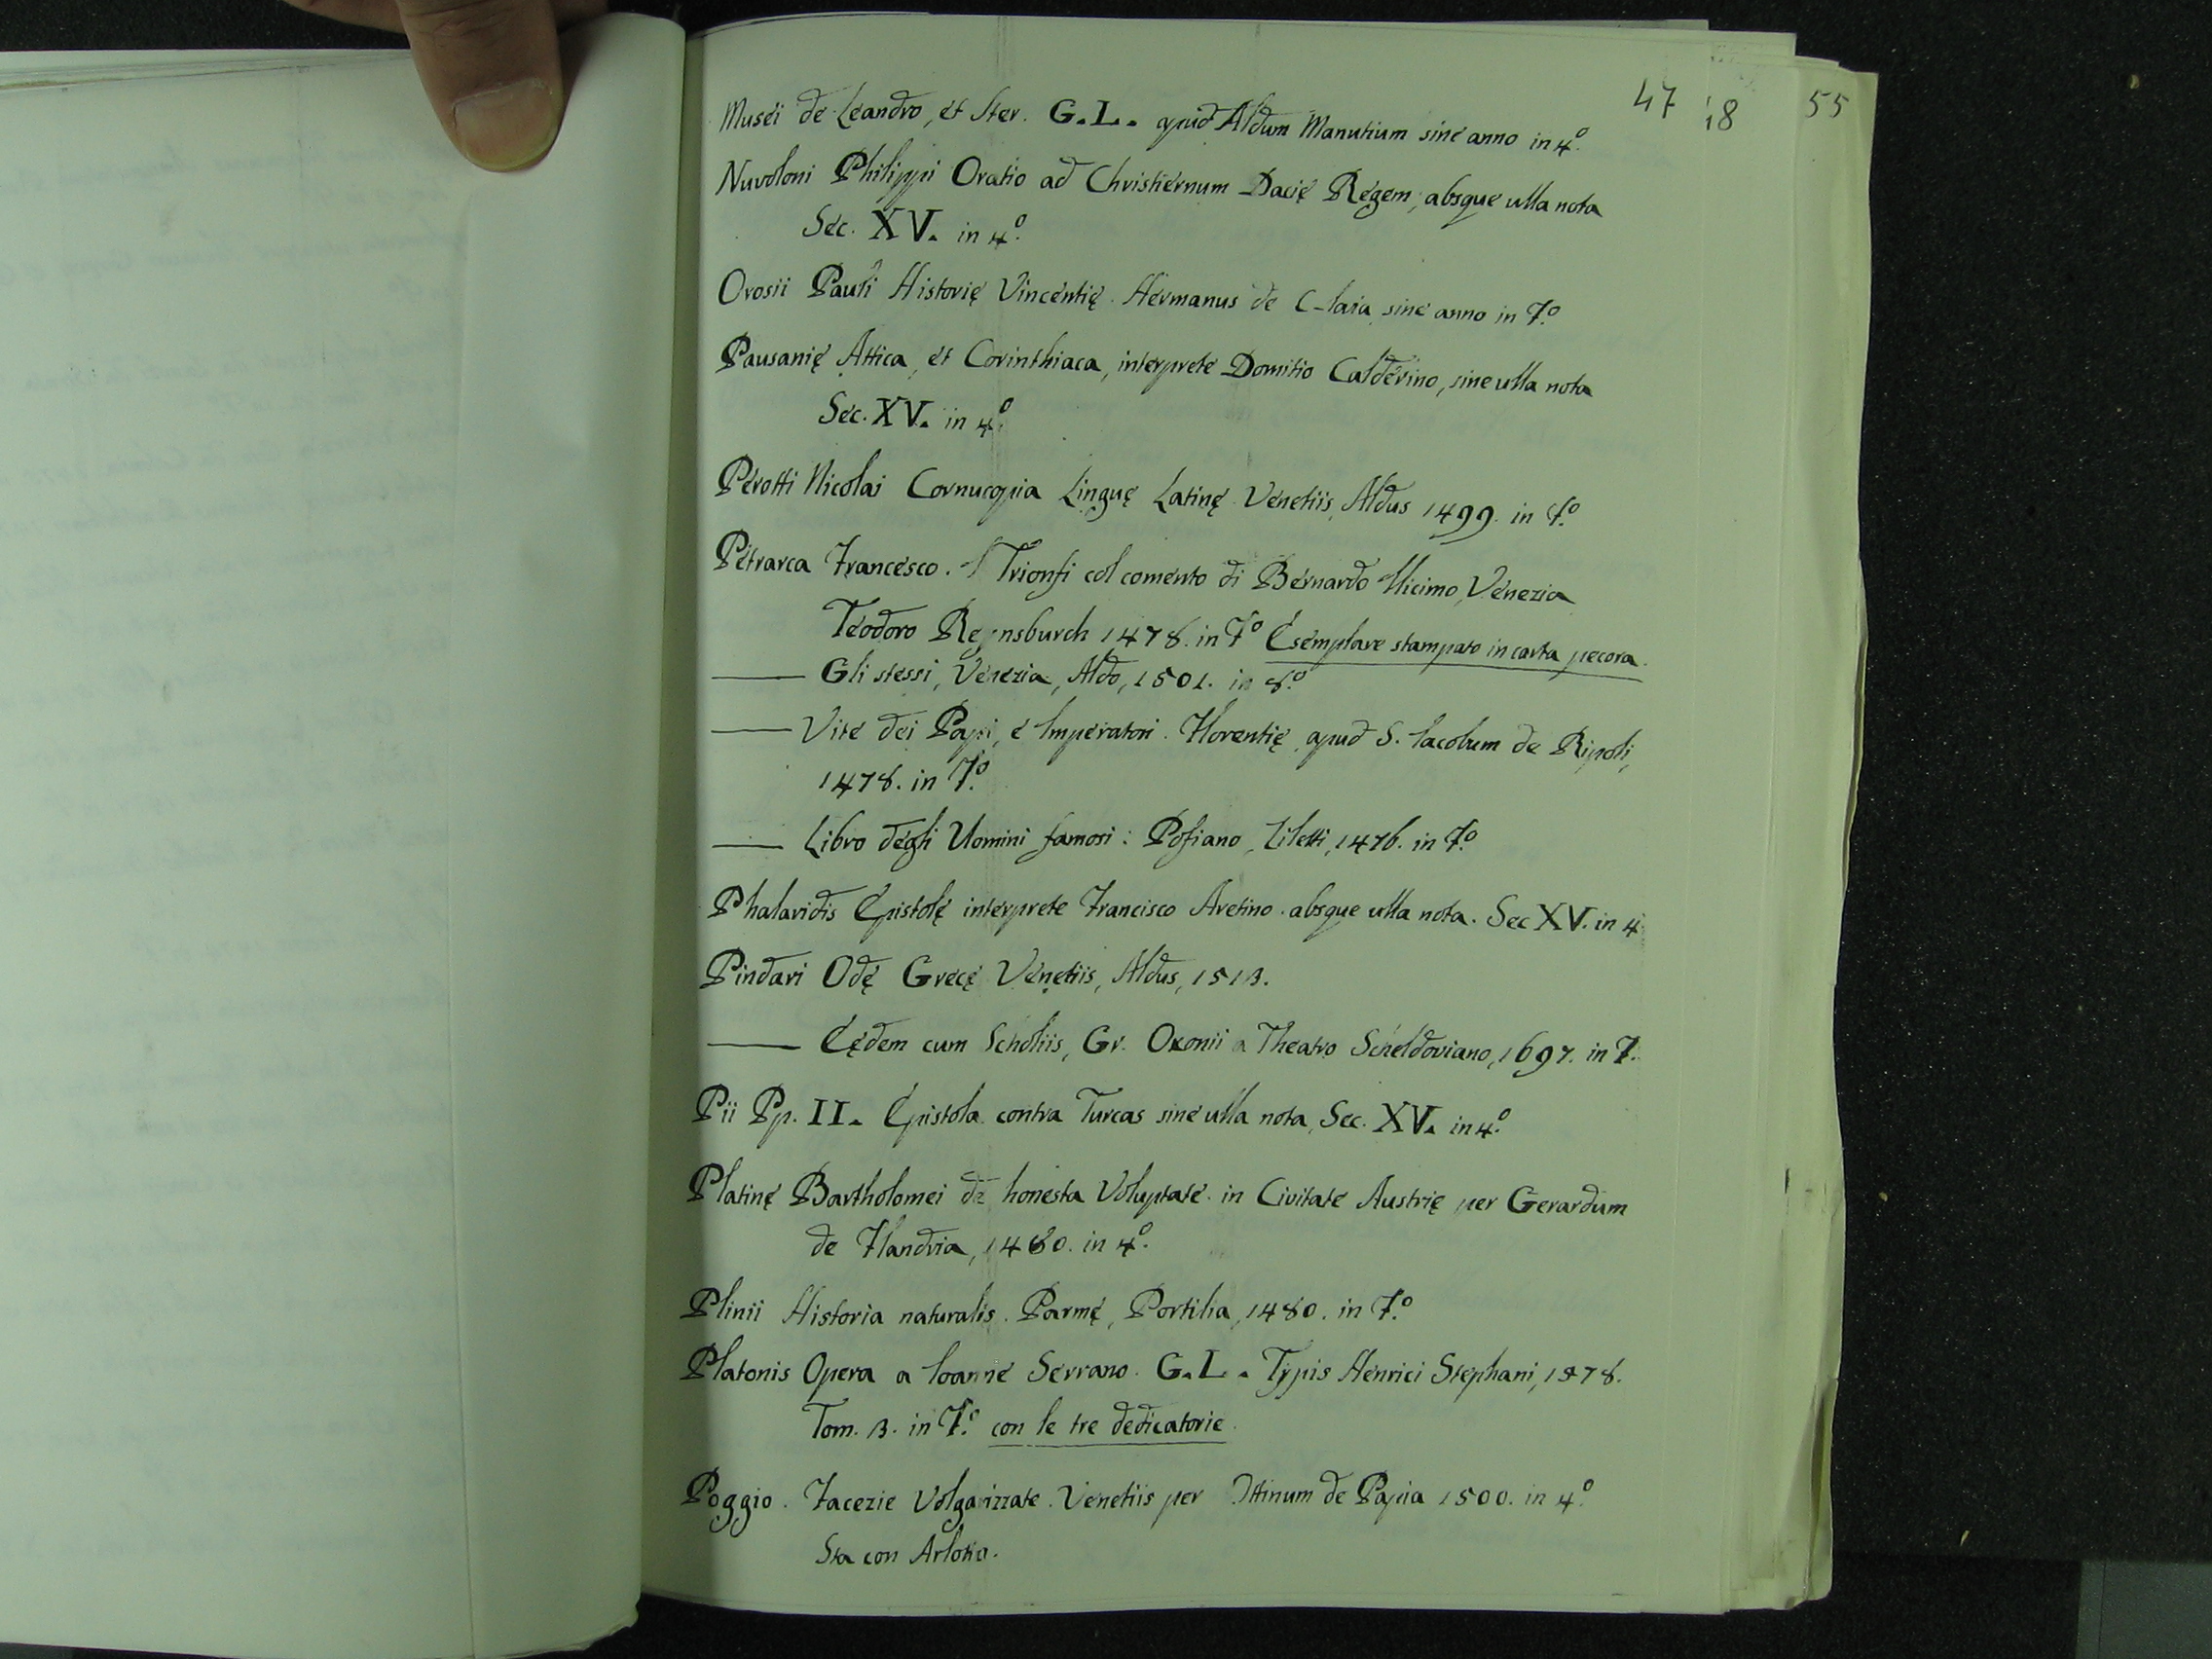 47 18 55
Musei de Leandro, et Her. G.L. apud Aldum Manutium sine anno in 4º.
Nuvoloni Philippi Oratio ad Christiernum Dacię Regem, absque ulla nota
Sec. XV. in 4º.
Orosii Pauli Historię Vincentię. Hermanus de C-laia sine anno in fº.
Pausanię Attica, et Corinthiaca, interprete Domitio Calderino, sine ulla nota
Sec. XV. in 4º.
Perotti Nicolai Cornucopia Linguę Latinę Venetiis, Aldus 1499. in fº.
Petrarca Francesco. I Trionfi col comento di Bernardo Ilicino, Venezia
Teodoro Reynsburch 1478. in fº Esemplare stampato in carta pecora.
—— Gli stessi, Venezia, Aldo, 1501. in 8º.
—— Vite dei Papi, e Imperatori. Florentię, apud S. Iacobum de Ripoli,
1478. in fº.
—— Libro degli Uomini famosi: Pofiano, Ziletti, 1476. in fº.
Phalaridis Epistolę interprete Francisco Aretino. absque ulla nota. Sec XV. in 4
Pindari Odę Grecę Venetiis, Aldus, 1513.
—— Eędem cum Scholiis, Gr. Oxonii a Theatro Scheldoviano, 1697. in f.
Pii Pp. II. Epistola contra Turcas sine ulla nota, Sec. XV. in 4º.
Platinę Bartholomei de honesta Voluptate. in Civitate Austrię per Gerardum
de Flandria, 1480. in 4º.
Plinii Historia naturalis. Parmę, Portilia, 1480. in fº.
Platonis Opera a Ioanne Serrano. G.L. Typis Henrici Stephani, 1578.
Tom. 3. in fº. con le tre dedicatorie.
Poggio. Facezie Volgarizzate. Venetiis per Ottinum de Papia 1500. in 4º.
Sta con Arlotto.